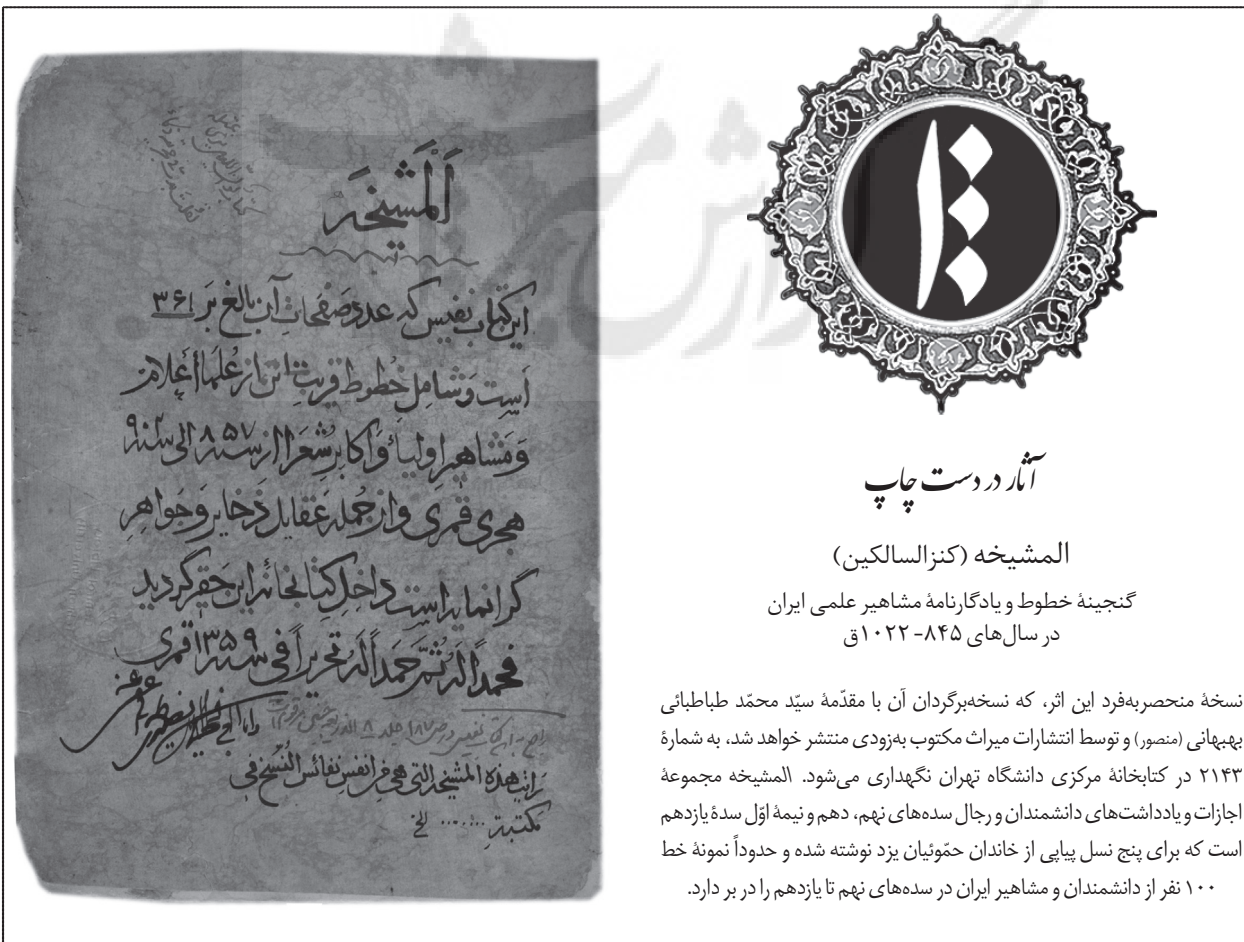 آثار در دست چاپ
المشیخه (کنزالسالکین)
گنجینهٔ خطوط و یادگارنامهٔ مشاهیر علمی ایران
در سال‌های ۸۴۵- ۱۰۲۲ق
نسخهٔ منحصربه‌فرد این اثر، که نسخه‌برگردان آن با مقدّمهٔ سیّد محمّد طباطبائی
بهبهانی (منصور) و توسط انتشارات میراث مکتوب به‌زودی منتشر خواهد شد، به شمارهٔ
۲۱۴۳ در کتابخانهٔ مرکزی دانشگاه تهران نگهداری می‌شود. المشیخه مجموعهٔ
اجازات و یادداشت‌های دانشمندان و رجال سده‌های نهم، دهم و نیمهٔ اوّل سدهٔ یازدهم
است که برای پنج نسل پیاپی از خاندان حمّوئیان یزد نوشته شده و حدوداً نمونهٔ خط
۱۰۰ نفر از دانشمندان و مشاهیر ایران در سده‌های نهم تا یازدهم را در بر دارد.
اَلْمَشیخَه
این کتاب نفیس که عدد صفحات آن بالغ بر ۳۶۱
است وَ شامل خُطوط قریب از عُلَماء أعلام
وَ مَشاهیر اولیاء وَ اکابر شُعَرا از سنه ۸۵۷ الی سنه
هجری قمری و از جمله عَقایل ذَخایر وَ جَواهر
گرانمایه است داخِل کتابخانه این حَقیر گردید
فحمداً له ثُمّ حَمداً له تحریراً فی سنه ۱۳۵۹ قمری
هذه المشیخه التی هی مِن انفس نفائس النُسَخ فی
مکتبته ........ الخ